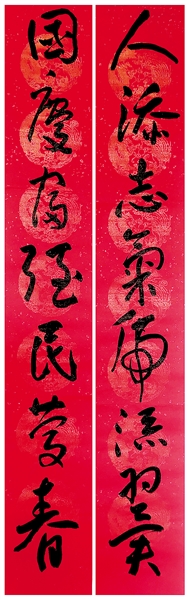 人添志氣虎添翼
國慶富強民慶春